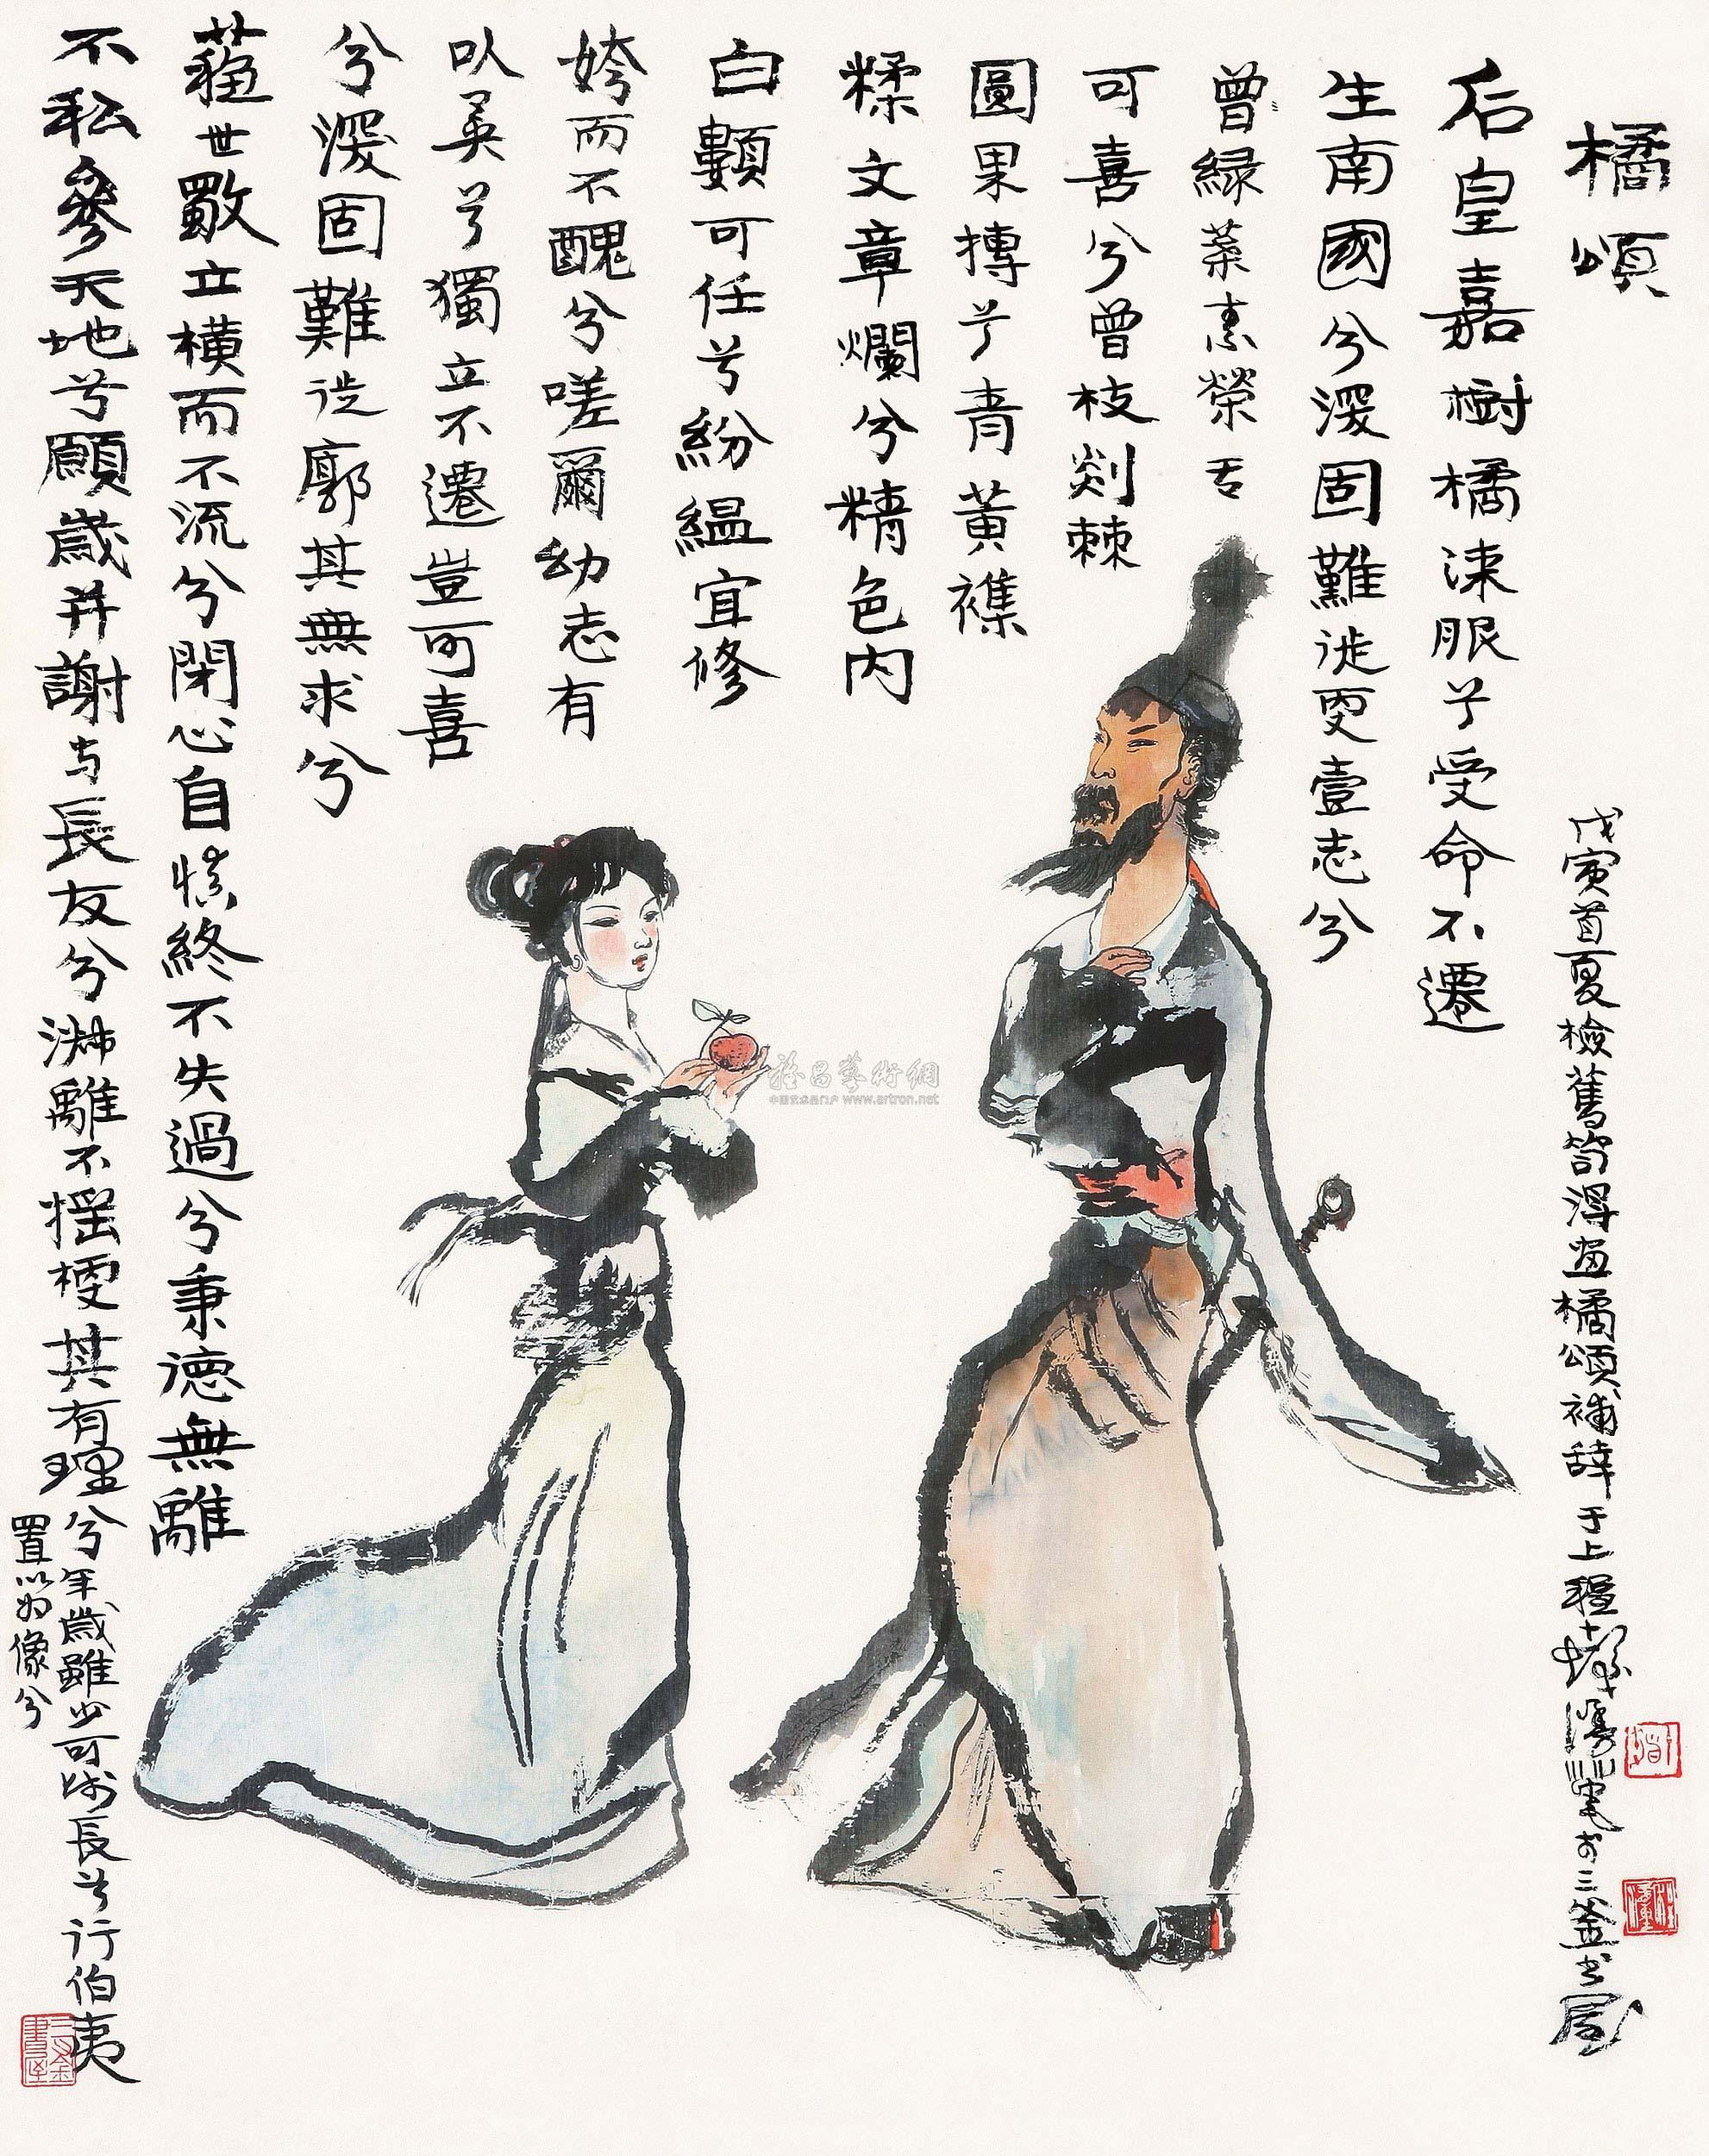 橘頌
后皇嘉樹橘涞服兮受命不遷
生南國兮深固難徙更壹志兮
曾緑葉素榮
可喜兮曾枝剡棘
圓果摶兮青黃襍
糅文章爛兮精色内
白類可任兮紛緼宜修
姱而不醜兮嗟爾幼志有
以異兮獨立不遷豈可喜
兮深固難徙廓其無求兮
蘓世獨立橫而不流兮閉心自慎終不失過兮秉德無離
不私參天地兮願歲并謝与長友兮淑離不摇梗其有理兮年歲雖少可師長兮行伯夷
置以為像兮
戊寅首夏檢舊笥得畫橘頌補辞于上程十髮漫筆於三釜書屋
三釜書屋
中国艺术品门户 www.artron.net